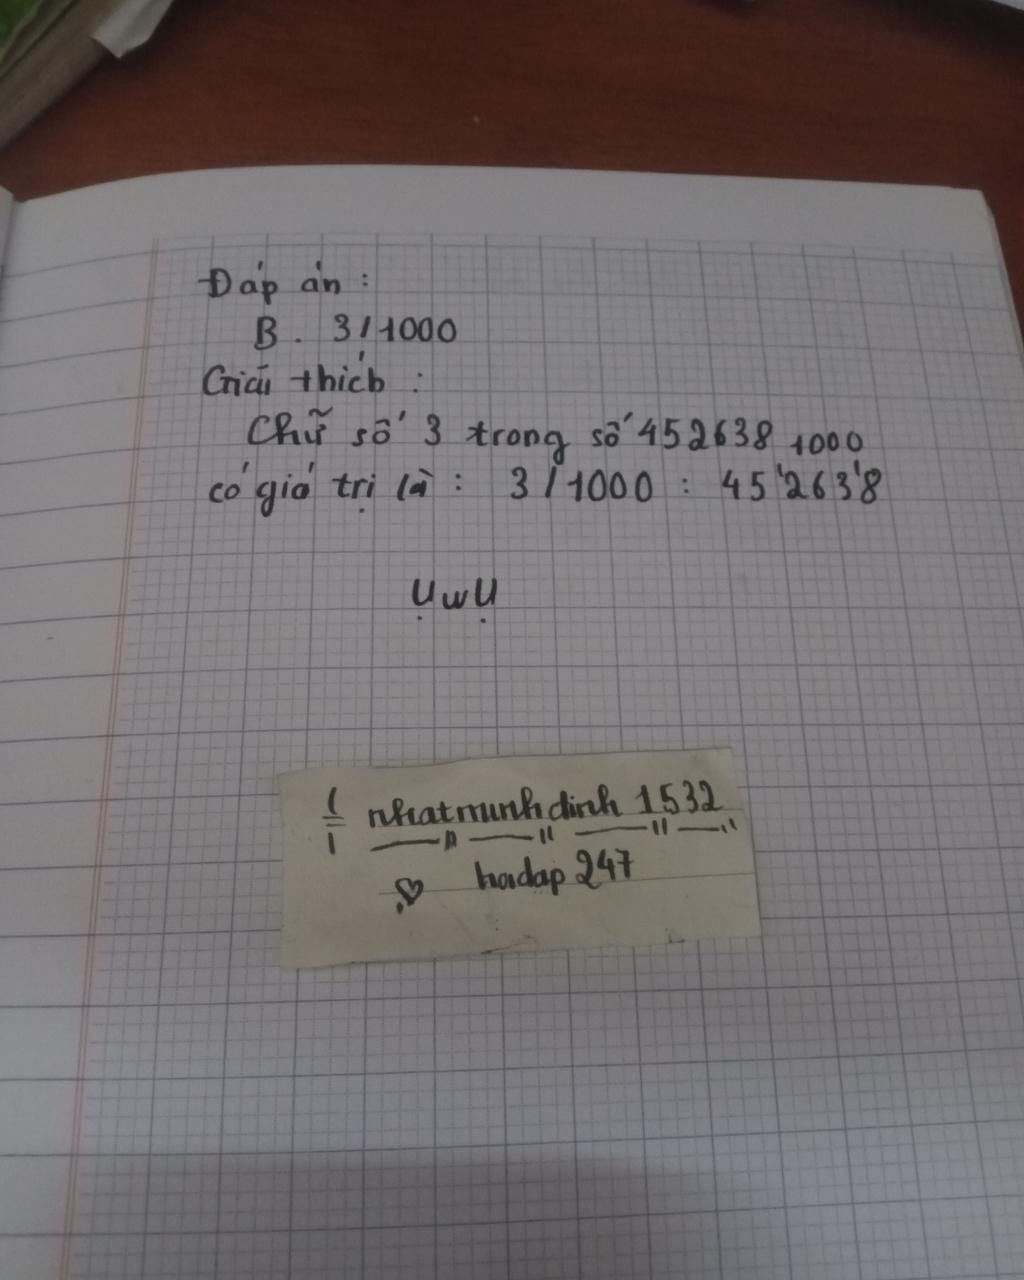 Đáp án :
B. 3/1000
Giải thích :
Chữ số 3 trong số 452638 1000
có giá trị là : 3/1000 : 45'263'8
ỤwỤ
nhatminhdinh 1532
hoidap 247